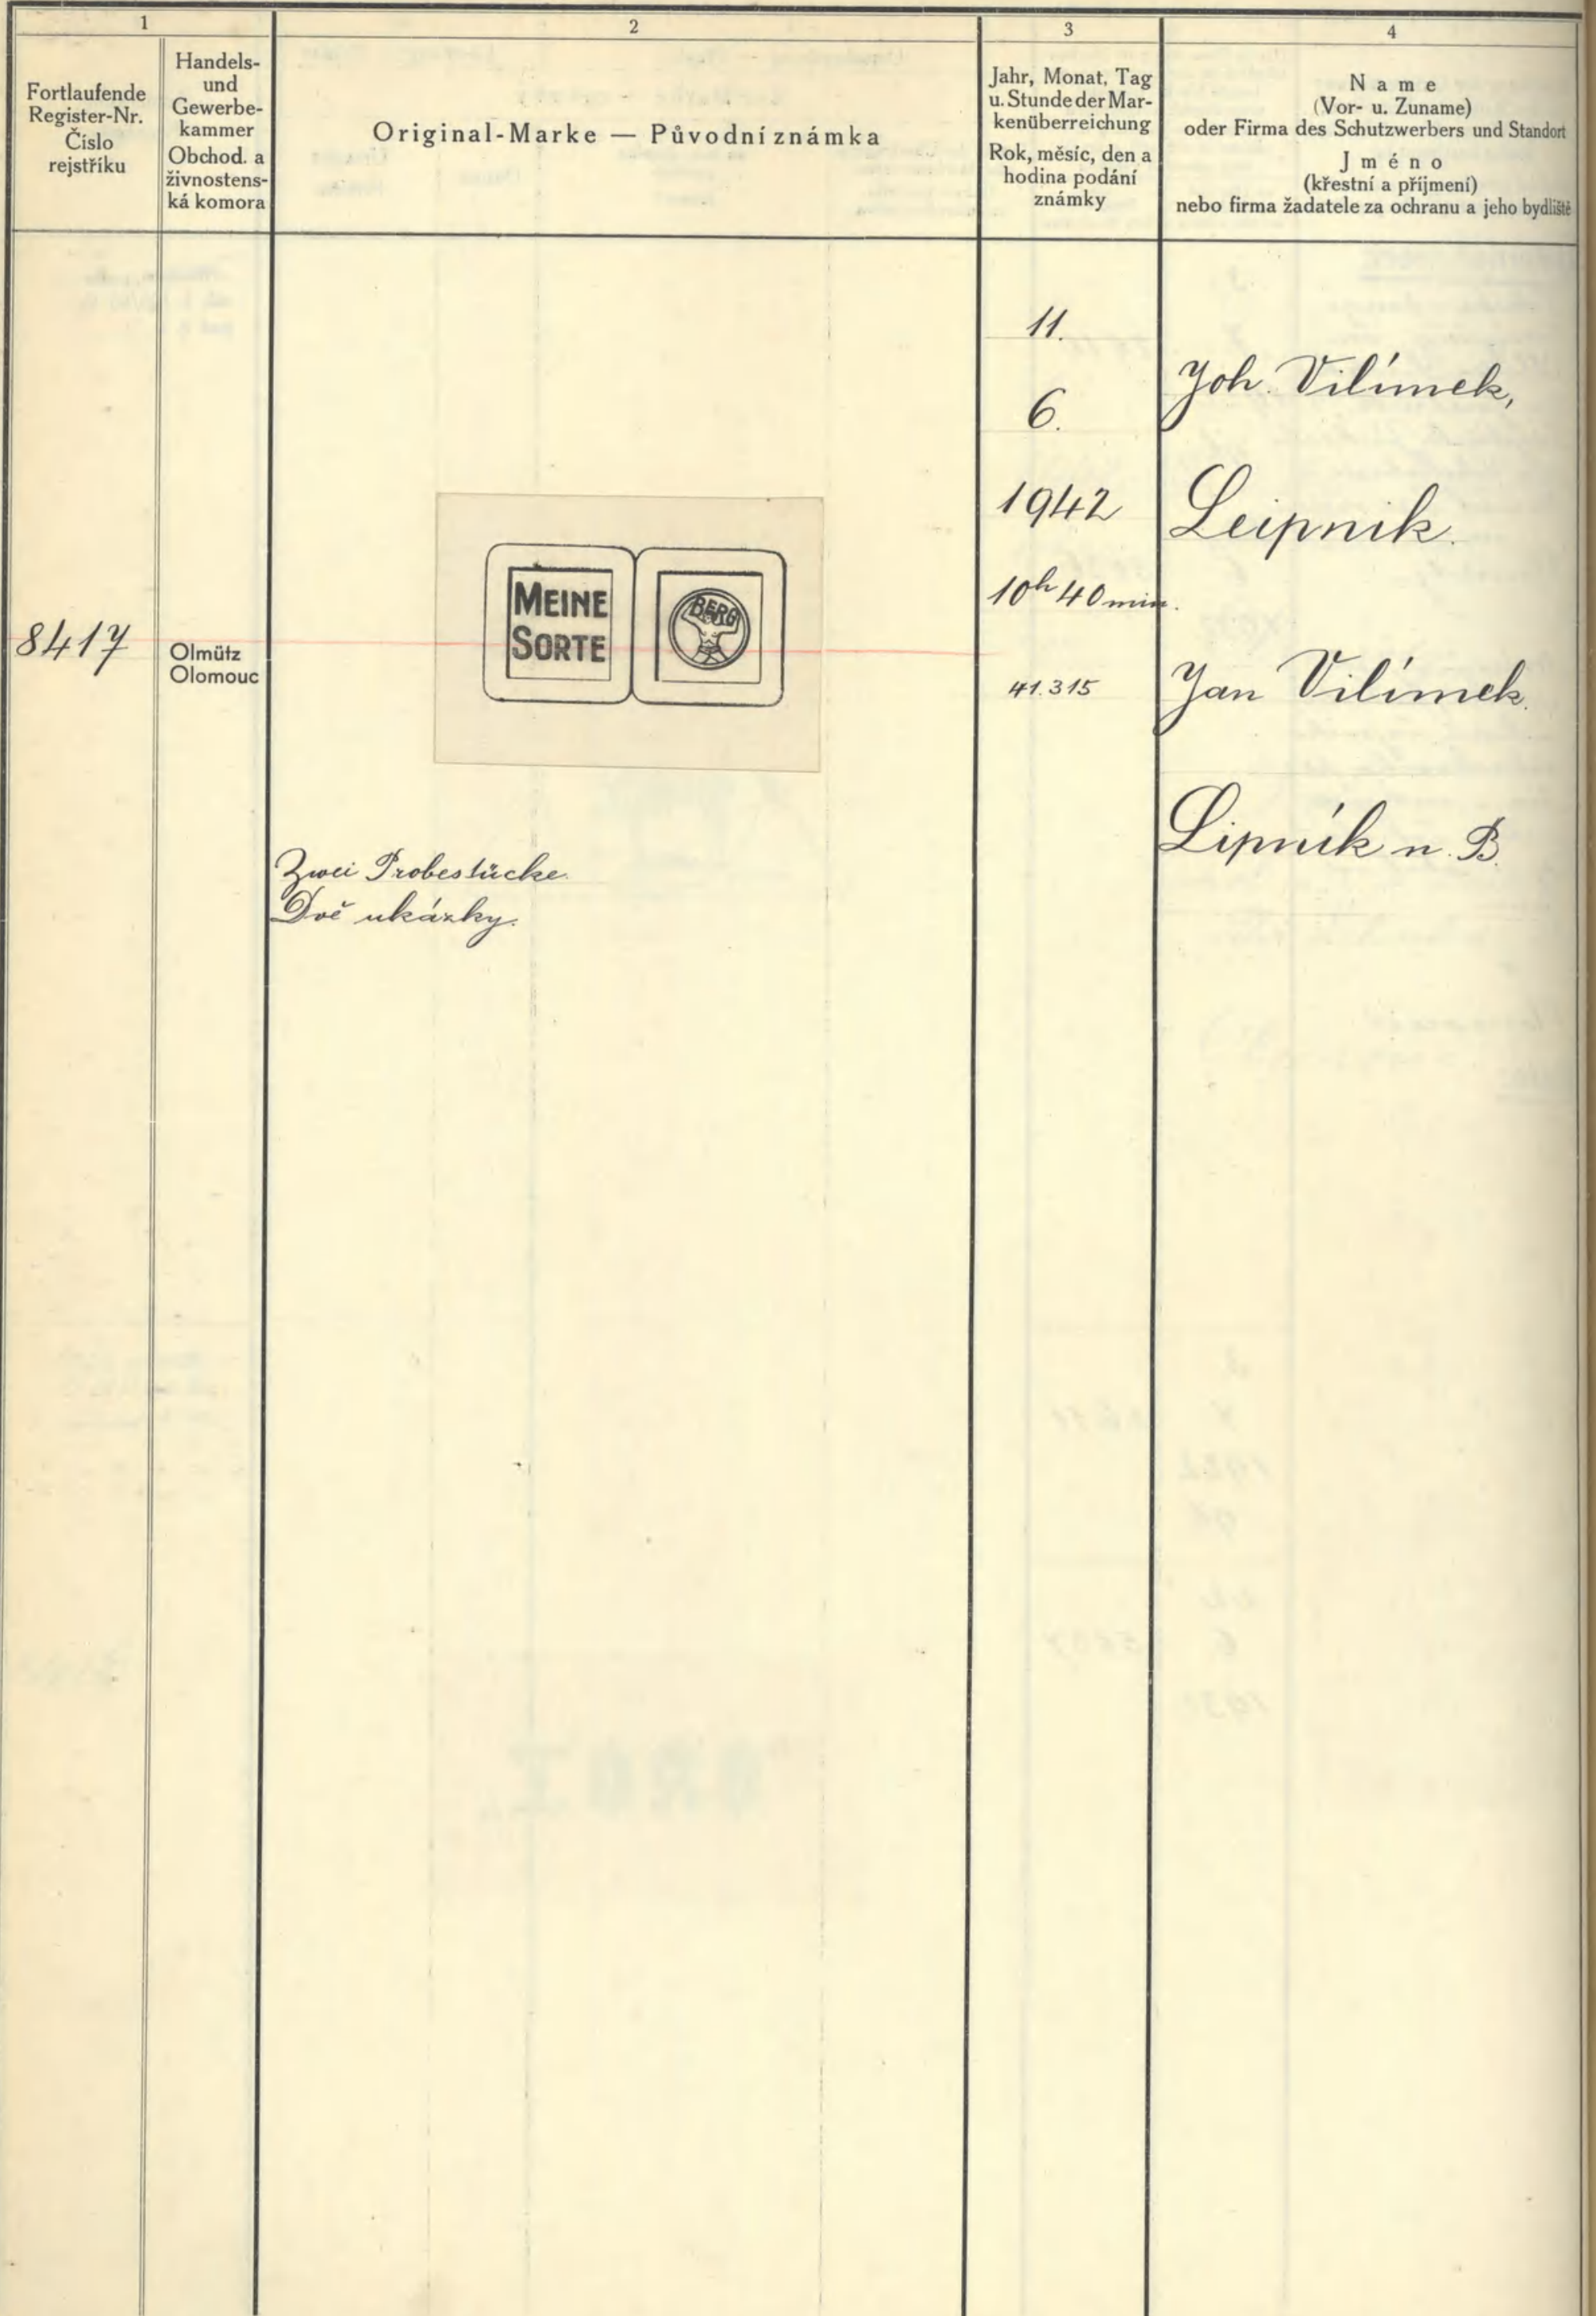 1
Fortlaufende
Register-Nr.
Číslo
rejstříku
Handels-
und
Gewerbe-
kammer
Obchod. a
živnostens-
ká komora
2
Original-Marke — Původní známka
3
Jahr, Monat, Tag
u. Stunde der Mar-
kenüberreichung
Rok, měsíc, den a
hodina podání
známky
4
Name
(Vor- u. Zuname)
oder Firma des Schutzwerbers und Standort
Jméno
(křestní a příjmení)
nebo firma žadatele za ochranu a jeho bydliště
8417
Olmütz
Olomouc
MEINE
SORTE
BERG
Zwei Probestücke.
Dvě ukázky.
11.
6.
1942
10h 40 min.
41.315
Joh. Vilímek,
Leipnik.
Jan Vilímek.
Lipník n. B.